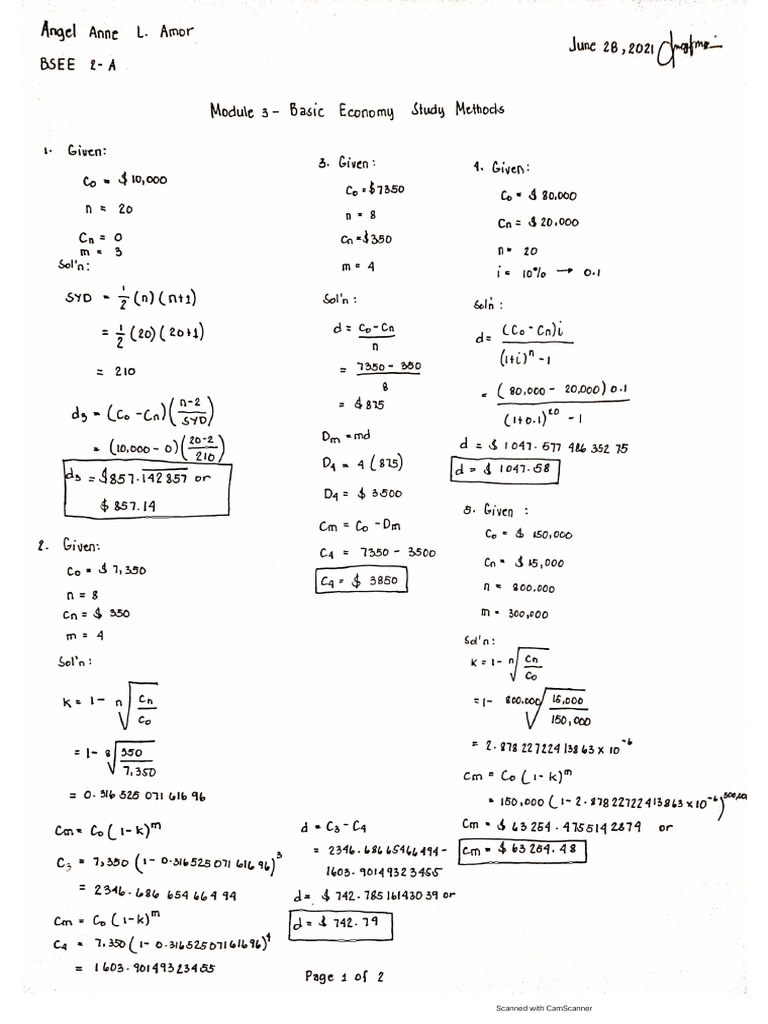 Angel Anne L. Amor
BSEE 2-A
June 28, 2021
Module 3 - Basic Economy Study Methods
1. Given:
Co = $10,000
n = 20
Cn = 0
m = 3
Sol'n:
SYD = 1/2 (n)(n+1)
= 1/2 (20)(20+1)
= 210
d3 = (Co - Cn)(n-2/SYD)
= (10,000 - 0)(20-2/210)
d3 = $857.142857 or
$857.14
2. Given:
Co = $7,350
n = 8
Cn = $350
m = 4
Sol'n:
K = 1 - n√Cn/Co
= 1 - 8√350/7,350
= 0.316 525 071 616 96
Cm = Co(1-k)^m
C3 = 7,350(1-0.316525071 61696)^3
= 2346.686 654 664 94
Cm = Co(1-k)^m
C4 = 7,350(1-0.316525071 61696)^4
= 1603.90149323455
d = C3 - C4
= 2346.68665466494 -
1603.90149323455
d = $742.78516143039 or
d = $742.79
3. Given:
Co = $7350
n = 8
Cn = $350
m = 4
Sol'n:
d = Co - Cn/n
= 7350 - 350/8
= $875
Dm = md
D4 = 4(875)
D4 = $3500
Cm = Co - Dm
C4 = 7350 - 3500
C4 = $3850
4. Given:
Co = $80,000
Cn = $20,000
n = 20
i = 10% → 0.1
Sol'n:
d = (Co - Cn)i/(1+i)^n - 1
= (80,000 - 20,000)0.1/(1+0.1)^20 - 1
d = $1047.577 486 352 75
d = $1047.58
5. Given:
Co = $150,000
Cn = $15,000
n = 800,000
m = 300,000
Sol'n:
K = 1 - n√Cn/Co
= 1 - 800,000√15,000/150,000
= 2.878 227224 13863 x 10^-6
Cm = Co(1-k)^m
= 150,000(1-2.87822722413863 x 10^-6)^300,000
Cm = $63254.4755142874 or
Cm = $63254.48
Page 1 of 2
Scanned with CamScanner